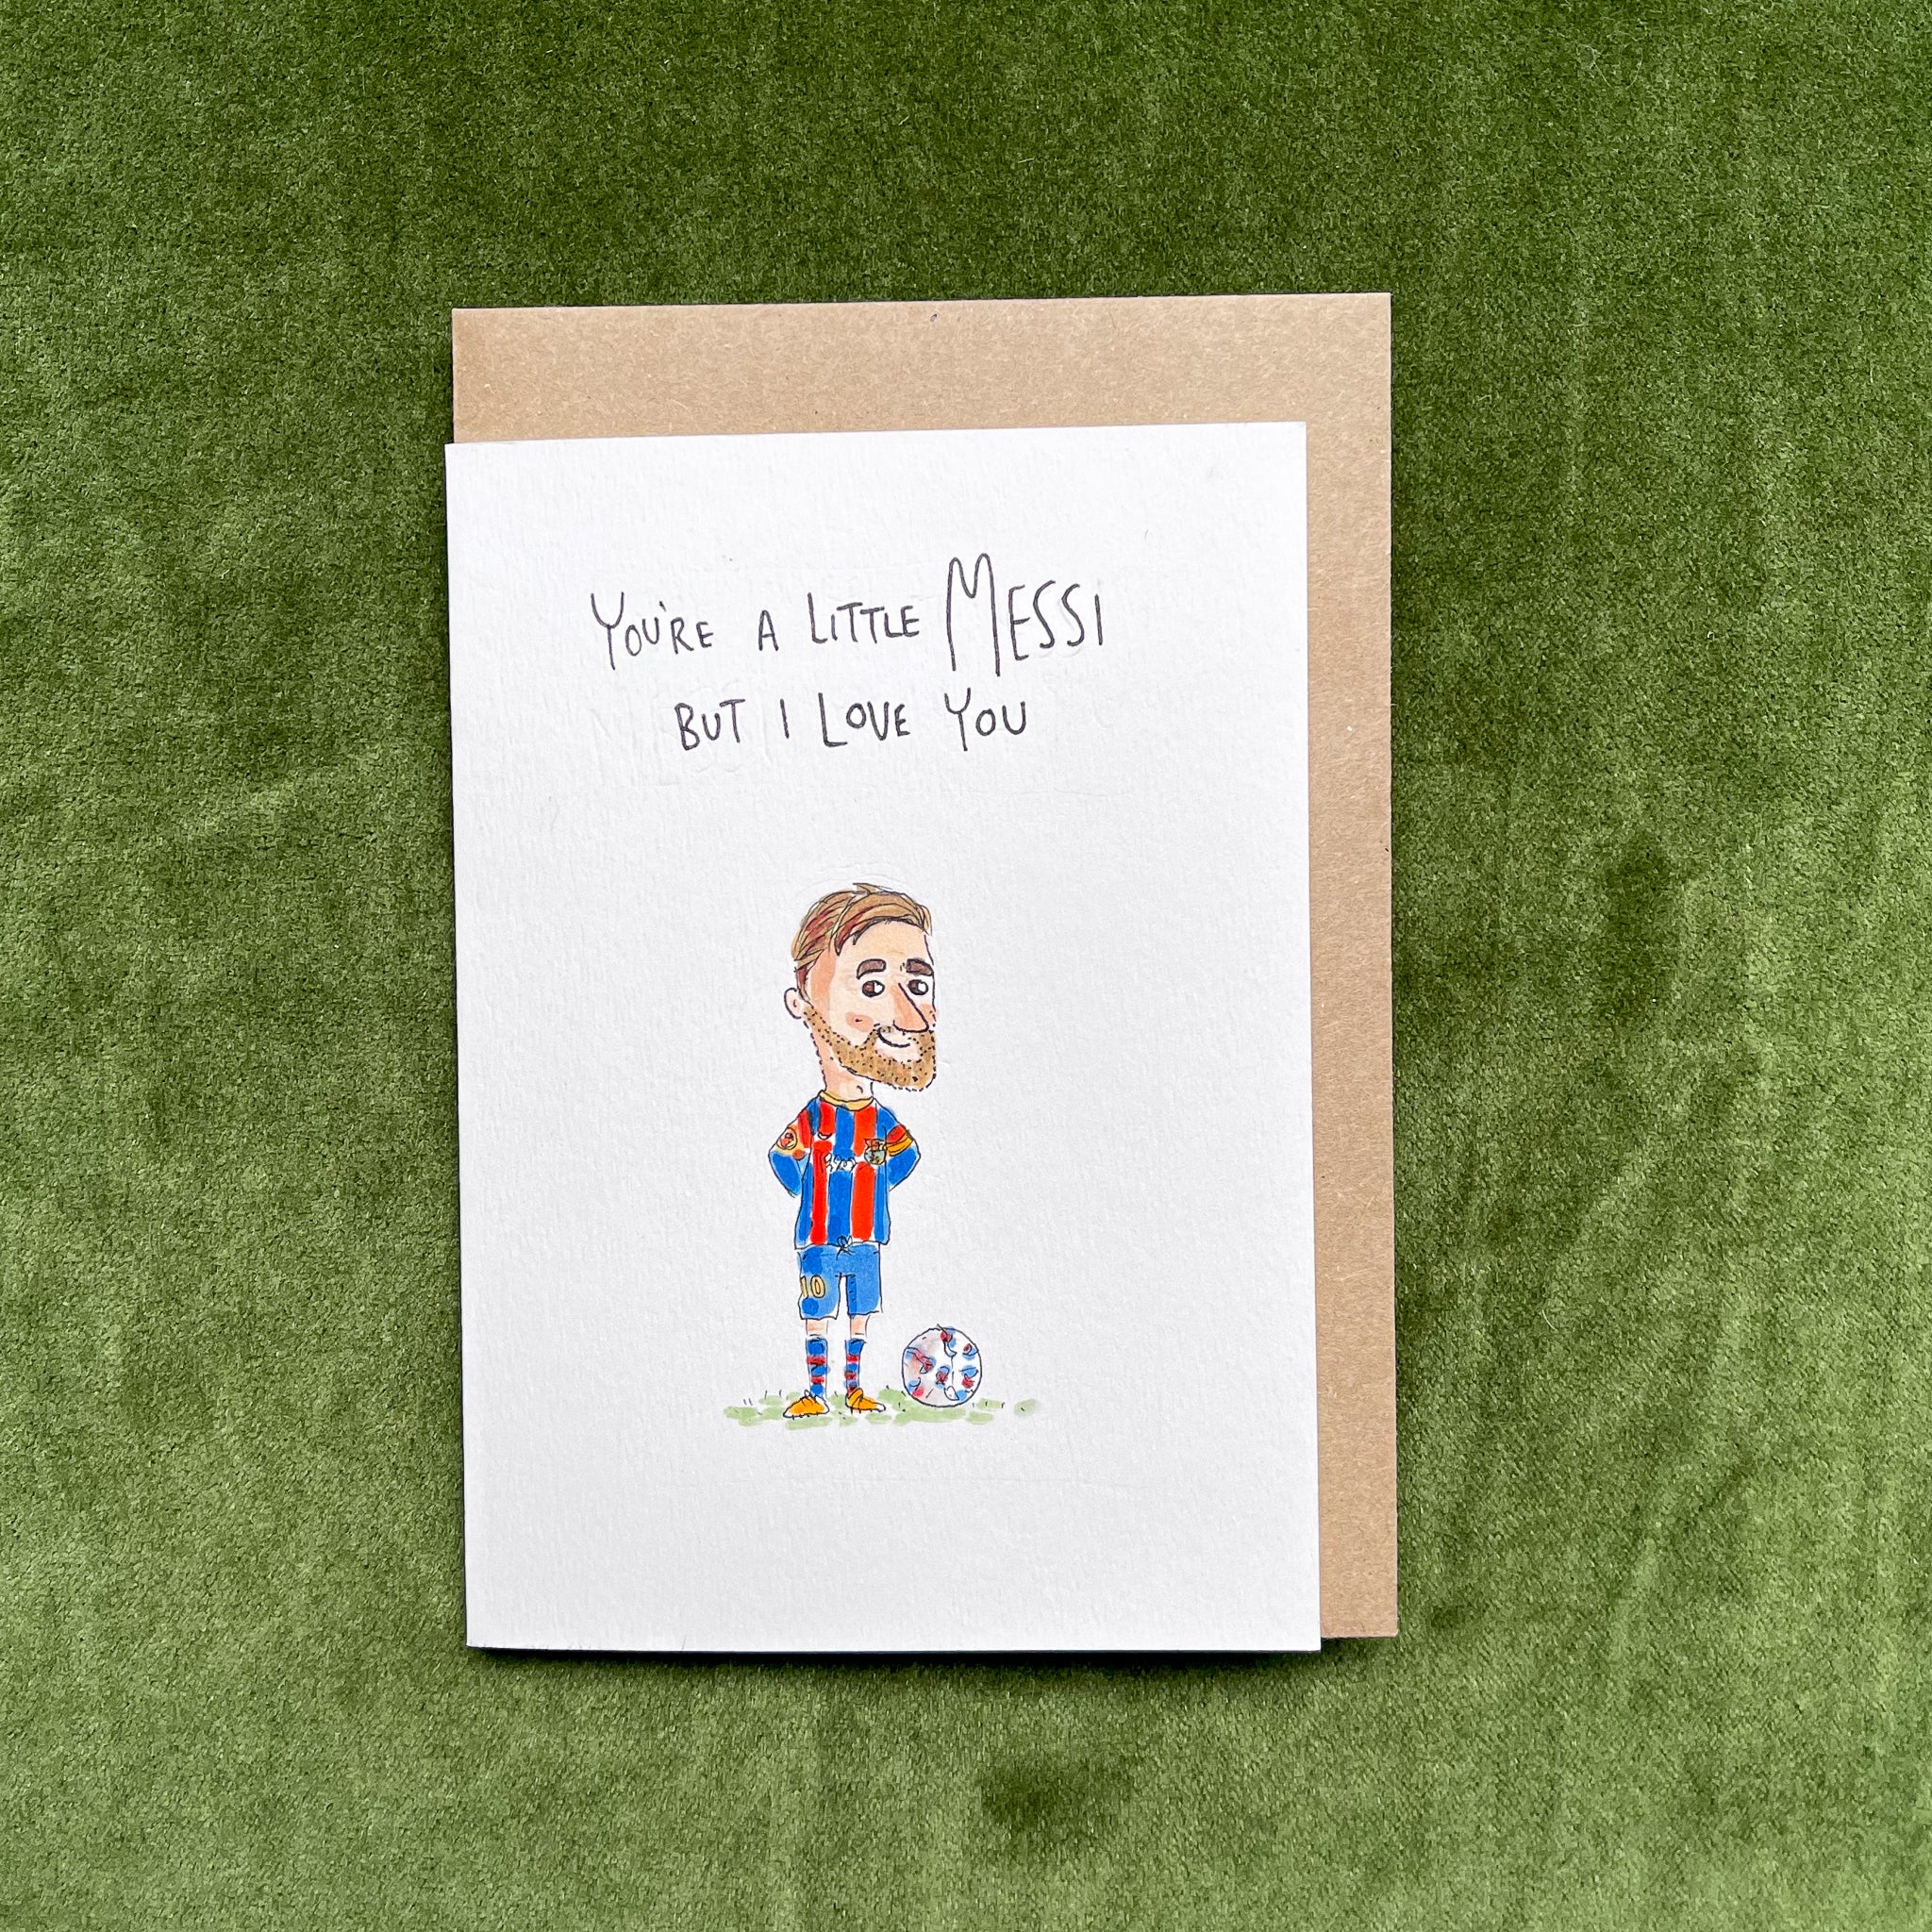 YOU'RE A LITTLE MESSI
BUT I LOVE YOU
10